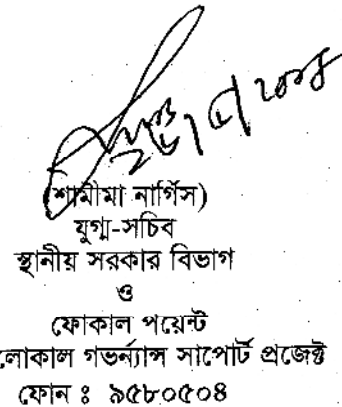 (শামীমা নার্গিস)
যুগ্ম-সচিব
স্থানীয় সরকার বিভাগ
ও
ফোকাল পয়েন্ট
লোকাল গভর্ন্যান্স সাপোর্ট প্রজেক্ট
ফোন ঃ ৯৫৮০৫০৪